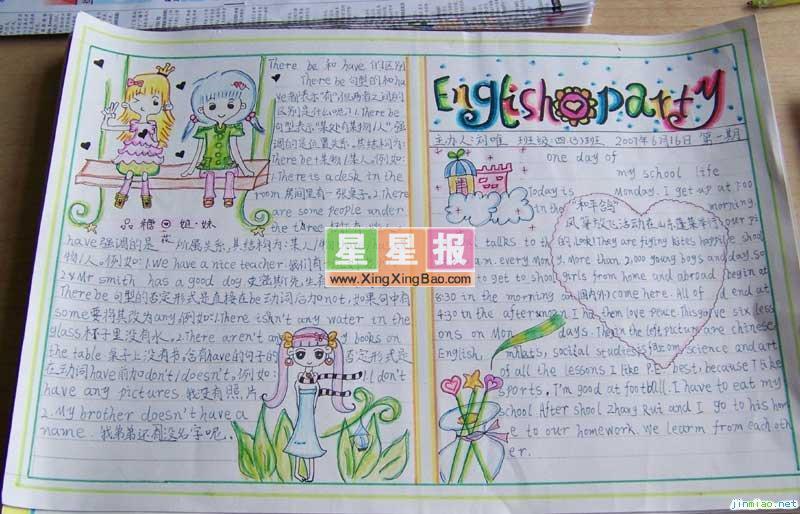 There be 和 have 的区别
There be 句型的和ha
ve都表示"有",但两者之间的
区别是什么呢? 1.There be
句型表示"某处有某物/人"强
调的是位置关系,其结构为:
There be+某物/某人。例如:
1.There is a desk in the
room 房间里有一张桌子。2.There
are some people under
the tree
品糖 姐·妹
have强调的是 所属关系,其结构为:某人
物/人。例如:1.We have a nice teacher 我们有
2.Mr smith has a good dog 史密斯先生有
There be句型的否定形式是直接在be动词后加not,如果句中有
some要将其改为any.例如:1.There isn't any water in the
glass 杯子里没有水。2.There aren't any books on
the table 桌子上没有书。含有have的句子的 否定形式是
在动词have前加don't/doesn't。例如: 1.I don't
have any pictures 我没有照片
2.My brother doesn't have a
name. 我弟弟还没名字呢。
English party
主办人:刘唯 班级:四(3)班 2007年6月16日 第一期
one day of
my school life
Today is Monday. I get up at 7:00
in the morning.
"和平鸽"
风筝放飞活动在山东蓬莱举行
talks to the
Look! They are flying kites
more than 2,000 young boys and
to get to school girls from home and abroad begin at
8:30 in the morning 国内外 come here. All of end at
4:30 in the afternoon them love peace. six less
ons on Mon days. The in the left picture are Chinese
English, maths, social studies science and art
of all the lessons I like P.E best, because I like
sports, I'm good at football. I have to eat my
school After shool Zhang Rui and I go to his hom
e to our homework. We learm from each oth
er.
星星报
www.XingXingBao.com
jinmiao.net